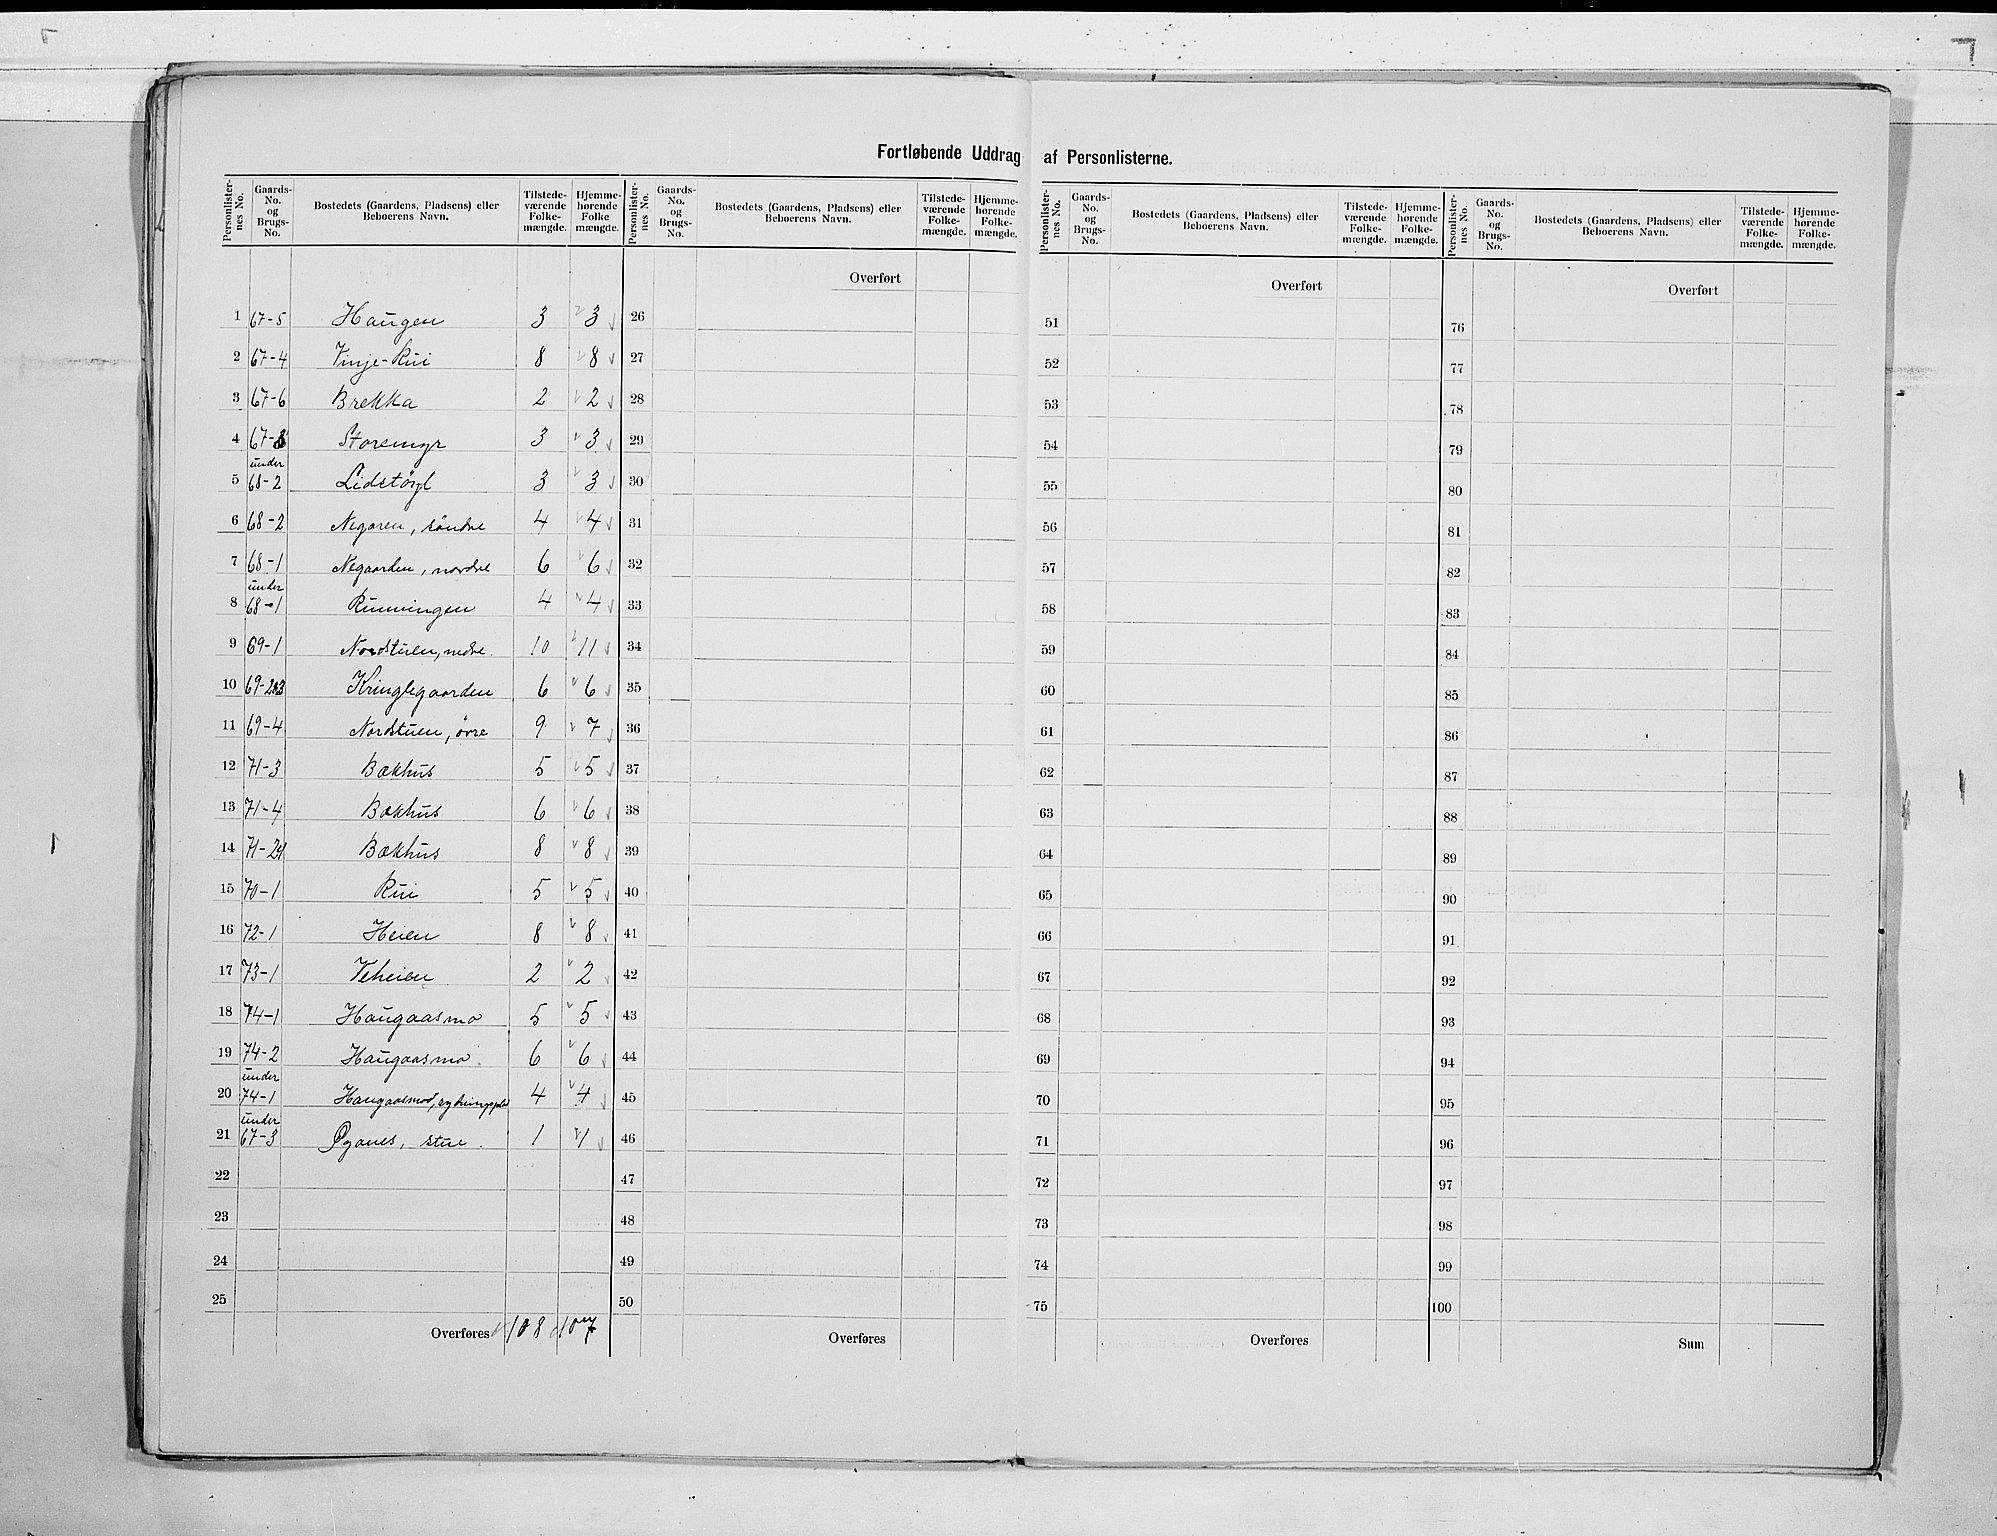 Fortløbende Uddrag af Personlisterne.
Personlister-nes No. Gaards-No. og Brugs-No. Bostedets (Gaardens, Pladsens) eller Beboerens Navn. Tilstede-værende Folke-mængde. Hjemme-hørende Folke mængde.
1 67-5 Haugen 3 3
2 67-4 Vinje-Rui 8 8
3 67-6 Brekka 2 2
4 67-8 Storemyr 3 3
5 under 68-2 Lidstøyl 3 3
6 68-2 Negaren, søndre 4 4
7 68-1 Negaarden, nordre 6 6
8 under 68-1 Runningen 4 4
9 69-1 Nordstuen, nedre. 10 11
10 69-2&3 Kringlegaarden 6 6
11 69-4 Nordstuen, övre 9 7
12 71-3 Bækhus 5 5
13 71-4 Bækhus 6 6
14 71-2 Bækhus 8 8
15 70-1 Rui 5 5
16 72-1 Heien 8 8
17 73-1 Veheien 2 2
18 74-1 Haugaasmo 5 5
19 74-2 Haugaasmo 6 6
20 under 74-1 Haugaasmo, 4 4
21 under 67-3 Øganes, stue. 1 1
22
23
24
25
Overføres 108 107
Personlister-nes No. Gaards-No. og Brugs-No. Bostedets (Gaardens, Pladsens) eller Beboerens Navn. Tilstede-værende Folke-mængde. Hjemme-hørende Folke-mængde.
Overført
26
27
28
29
30
31
32
33
34
35
36
37
38
39
40
41
42
43
44
45
46
47
48
49
50
Overføres
Personlister-nes No. Gaards-No. og Brugs-No. Bostedets (Gaardens, Pladsens) eller Beboerens Navn. Tilstede-værende Folke-mængde. Hjemme-hørende Folke-mængde.
Overført
51
52
53
54
55
56
57
58
59
60
61
62
63
64
65
66
67
68
69
70
71
72
73
74
75
Overføres
Personlister-nes No. Gaards-No. og Brugs-No. Bostedets (Gaardens, Pladsens) eller Beboerens Navn. Tilstede-værende Folke-mængde. Hjemme-hørende Folke-mængde.
Overført
76
77
78
79
80
81
82
83
84
85
86
87
88
89
90
91
92
93
94
95
96
97
98
99
100
Sum